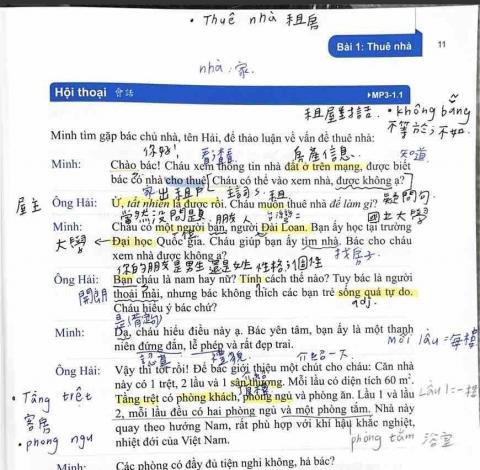 • Thuê nhà 租房
Bài 1: Thuê nhà 11
nhà: 家
Hội thoại 會話 ▸MP3-1.1
租屋對話 • không bằng
不等於, 不如
Minh tìm gặp bác chủ nhà, tên Hải, để thảo luận về vấn đề thuê nhà:
你好! 看清楚 房產信息 知道
Minh: Chào bác! Cháu xem thông tin nhà đất ở trên mạng, được biết
bác có nhà cho thuê. Cháu có thể vào xem nhà, được không ạ?
屋主 Ông Hải: Ừ, tất nhiên là được rồi. Cháu muốn thuê nhà để làm gì? 疑問句
當然沒問題 朋友 國立大學
Minh: Cháu có một người bạn, người Đài Loan. Bạn ấy học tại trường
大學 ← Đại học Quốc gia. Cháu giúp bạn ấy tìm nhà. Bác cho cháu
xem nhà được không ạ? 找房子
你的朋友是男生還是女生 性格 個性
Ông Hải: Bạn cháu là nam hay nữ? Tính cách thế nào? Tuy bác là người
開朗 thoải mái, nhưng bác không thích các bạn trẻ sống quá tự do.
Cháu hiểu ý bác chứ? adj.
Minh: Dạ, cháu hiểu điều này ạ. Bác yên tâm, bạn ấy là một thanh
niên đứng đắn, lễ phép và rất đẹp trai. mỗi lầu = 每樓
認真 禮貌 介紹一下
Ông Hải: Vậy thì tốt rồi! Để bác giới thiệu một chút cho cháu: Căn nhà
này có 1 trệt, 2 lầu và 1 sân thượng. Mỗi lầu có diện tích 60 m².
• Tầng trệt Tầng trệt có phòng khách, phòng ngủ và phòng ăn. Lầu 1 và lầu Lầu 1 = 一樓
客房 2, mỗi lầu đều có hai phòng ngủ và một phòng tắm. Nhà này
• phong ngu quay theo hướng Nam, rất phù hợp với khí hậu khắc nghiệt,
nhiệt đới của Việt Nam. phòng tắm 浴室
Minh: Các phòng có đầy đủ tiện nghi không, hả bác?